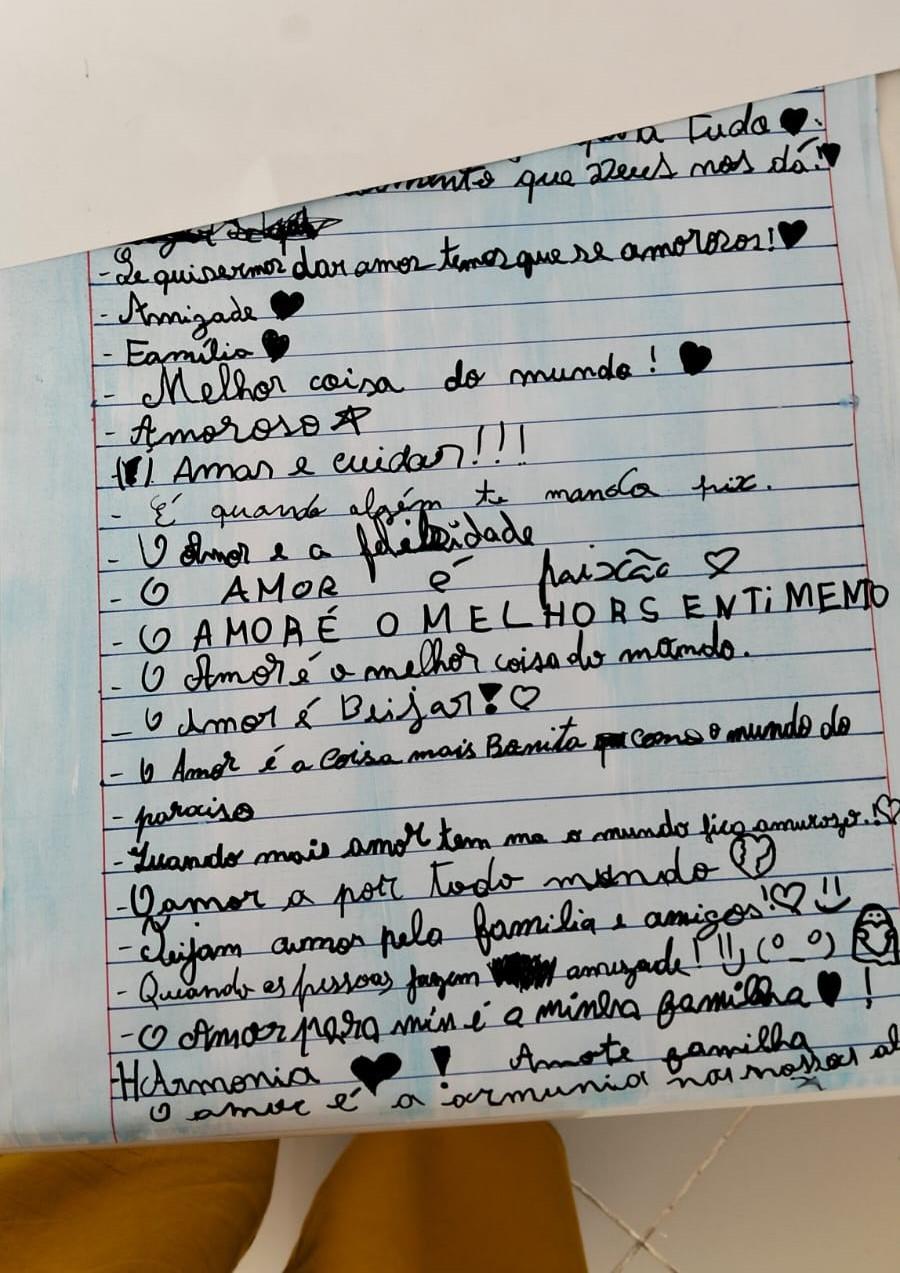 Tudo
que Deus nos dá!
- Se quisermos dar amor temos que se amorozos!
- Amizade
- Eamília
- Melhor coisa do mundo!
- Amoroso
Amar e cuidar!!!
- É quando algém te manda pix.
- O Amor e a felicidade
- O AMOR é paixão
- O AMOR É O MELHOR SENTIMENTO
- O Amor é a melhor coisa do mando.
- O Amor é Beijar!
- O Amor é a coisa mais Bonita como o mundo do
- paraiso
- Quando mais amor tem ma o mundo fica amurozo.!
- O amor a por todo mundo
- Seijam amos pela familia e amigos!
- Queando as pessoas fazem amizade!!! (º_º)
- O Amor para min é a minha familha!
HArmonia! Amote familha
O amor é a armunia nas nossas al